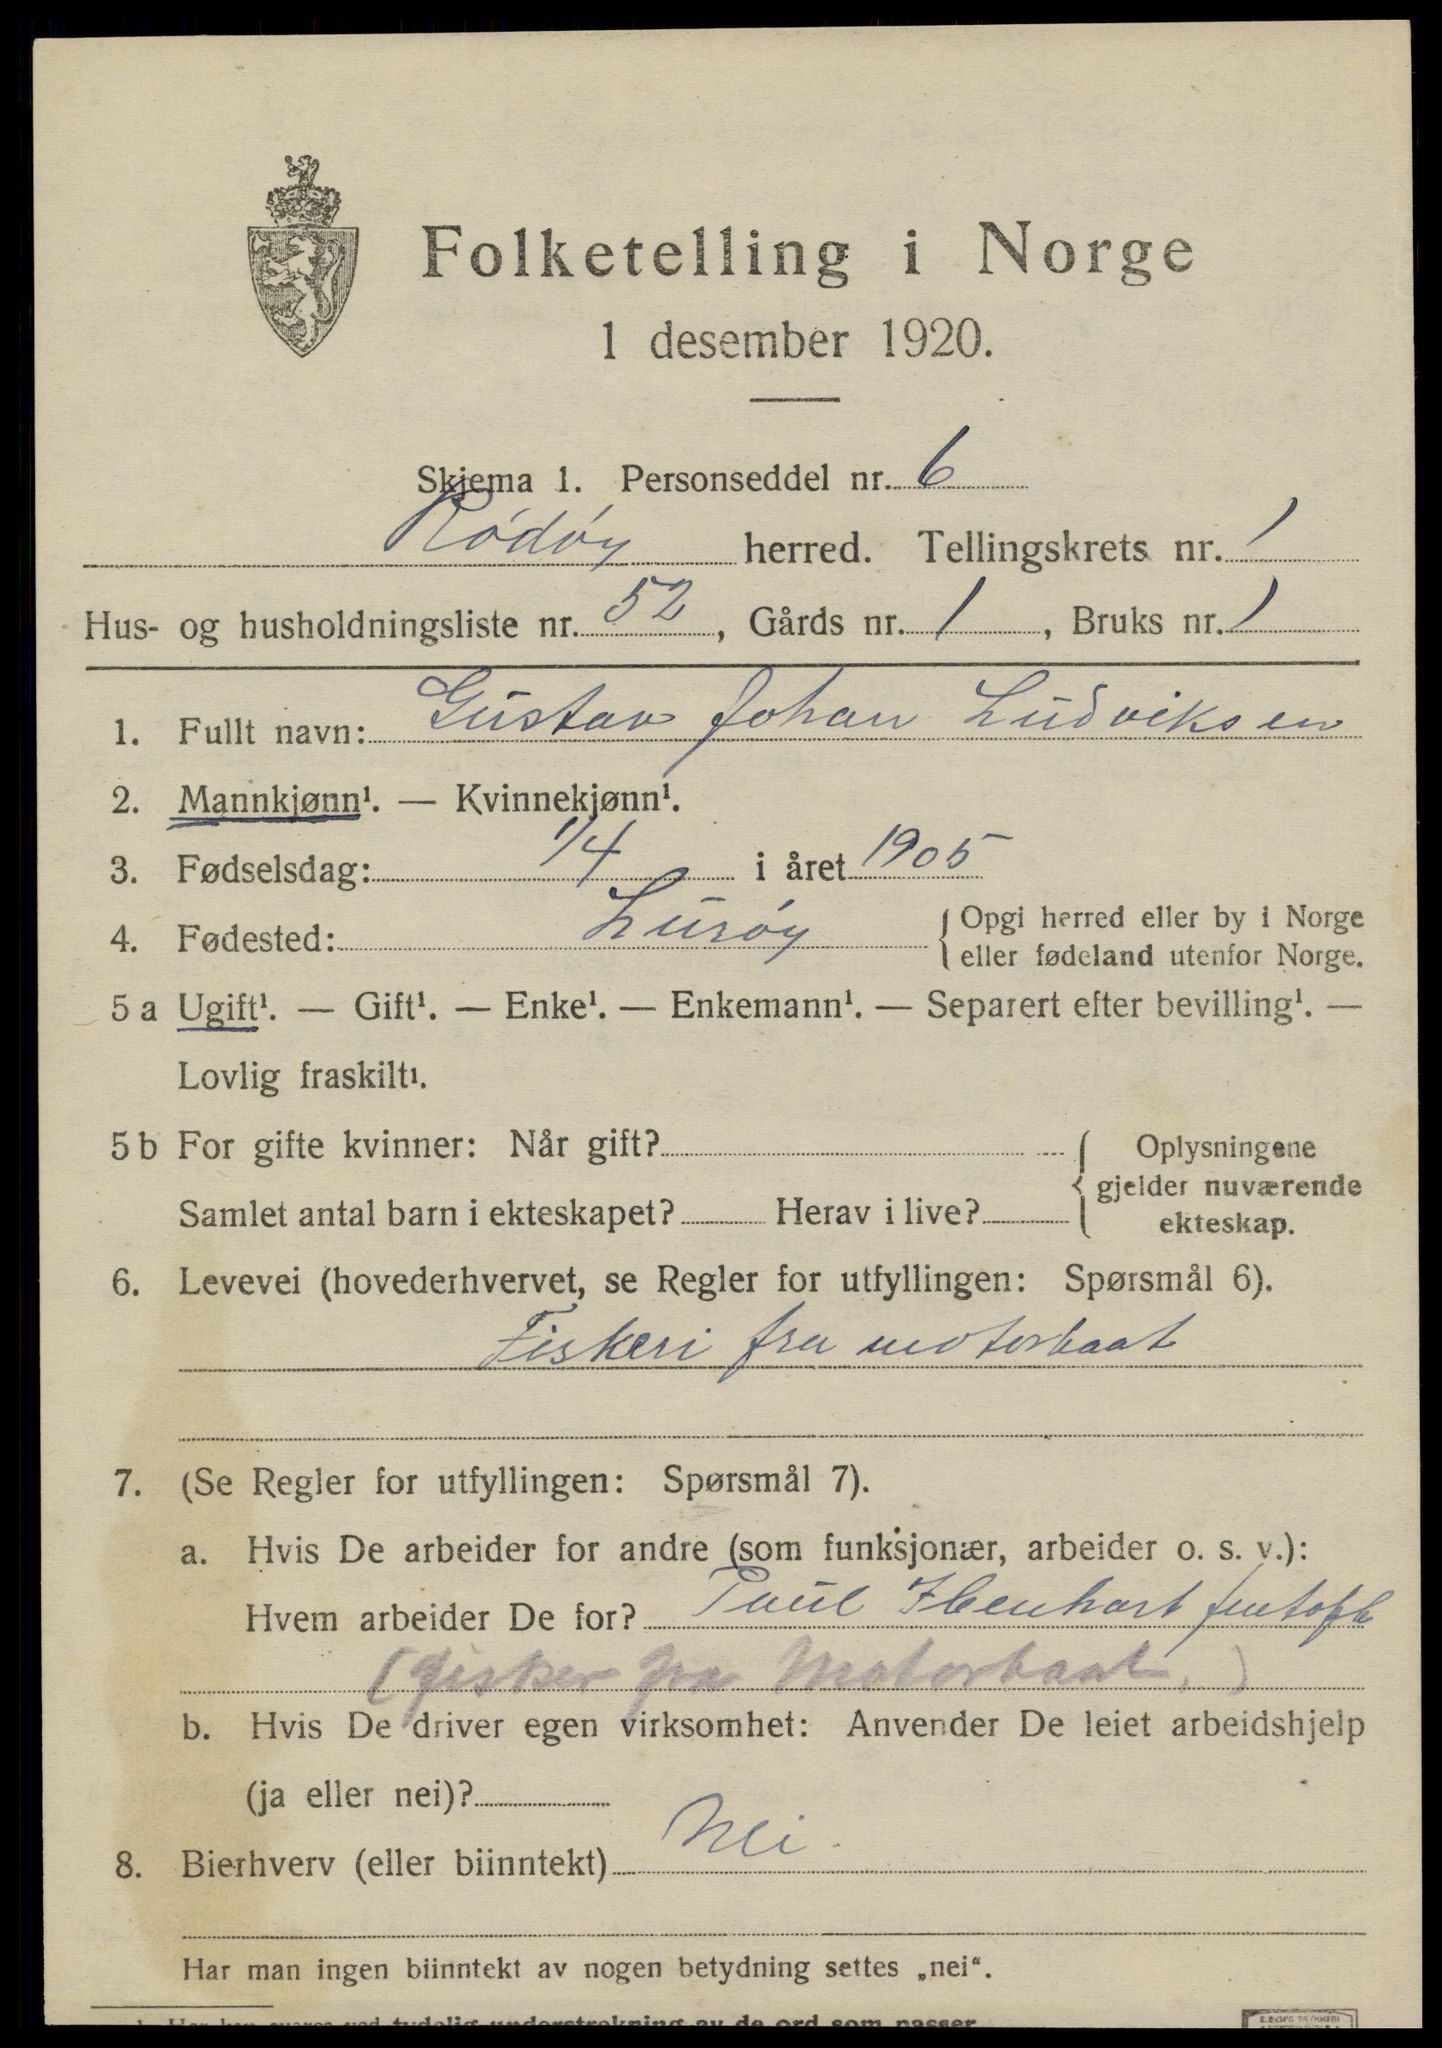 Folketelling i Norge
1 desember 1920.
Skjema 1. Personseddel nr. 6
Rödöy herred. Tellingskrets nr. 1
Hus- og husholdningsliste nr. 52, Gårds nr. 1, Bruks nr. 1
1. Fullt navn: Gustav Johan Ludviksen
2. Mannkjønn¹. — Kvinnekjønn¹.
3. Fødselsdag: 1/4 i året 1905
4. Fødested: Luröy { Opgi herred eller by i Norge
eller fødeland utenfor Norge.
5 a Ugift¹. — Gift¹. — Enke¹. — Enkemann¹. — Separert efter bevilling¹. —
Lovlig fraskilt¹.
5 b For gifte kvinner: Når gift? { Oplysningene
gjelder nuværende
Samlet antal barn i ekteskapet? Herav i live?
ekteskap.
6. Levevei (hovederhvervet, se Regler for utfyllingen: Spørsmål 6).
Fiskeri fra motorbaat
7. (Se Regler for utfyllingen: Spørsmål 7).
a. Hvis De arbeider for andre (som funksjonær, arbeider o. s. v.):
Hvem arbeider De for? Paul
(fisker fra Motorbaat.)
b. Hvis De driver egen virksomhet: Anvender De leiet arbeidshjelp
(ja eller nei)?
8. Bierhverv (eller biinntekt) Nei.
Har man ingen biinntekt av nogen betydning settes „nei“.
tydelig understrekning av de ord som passer